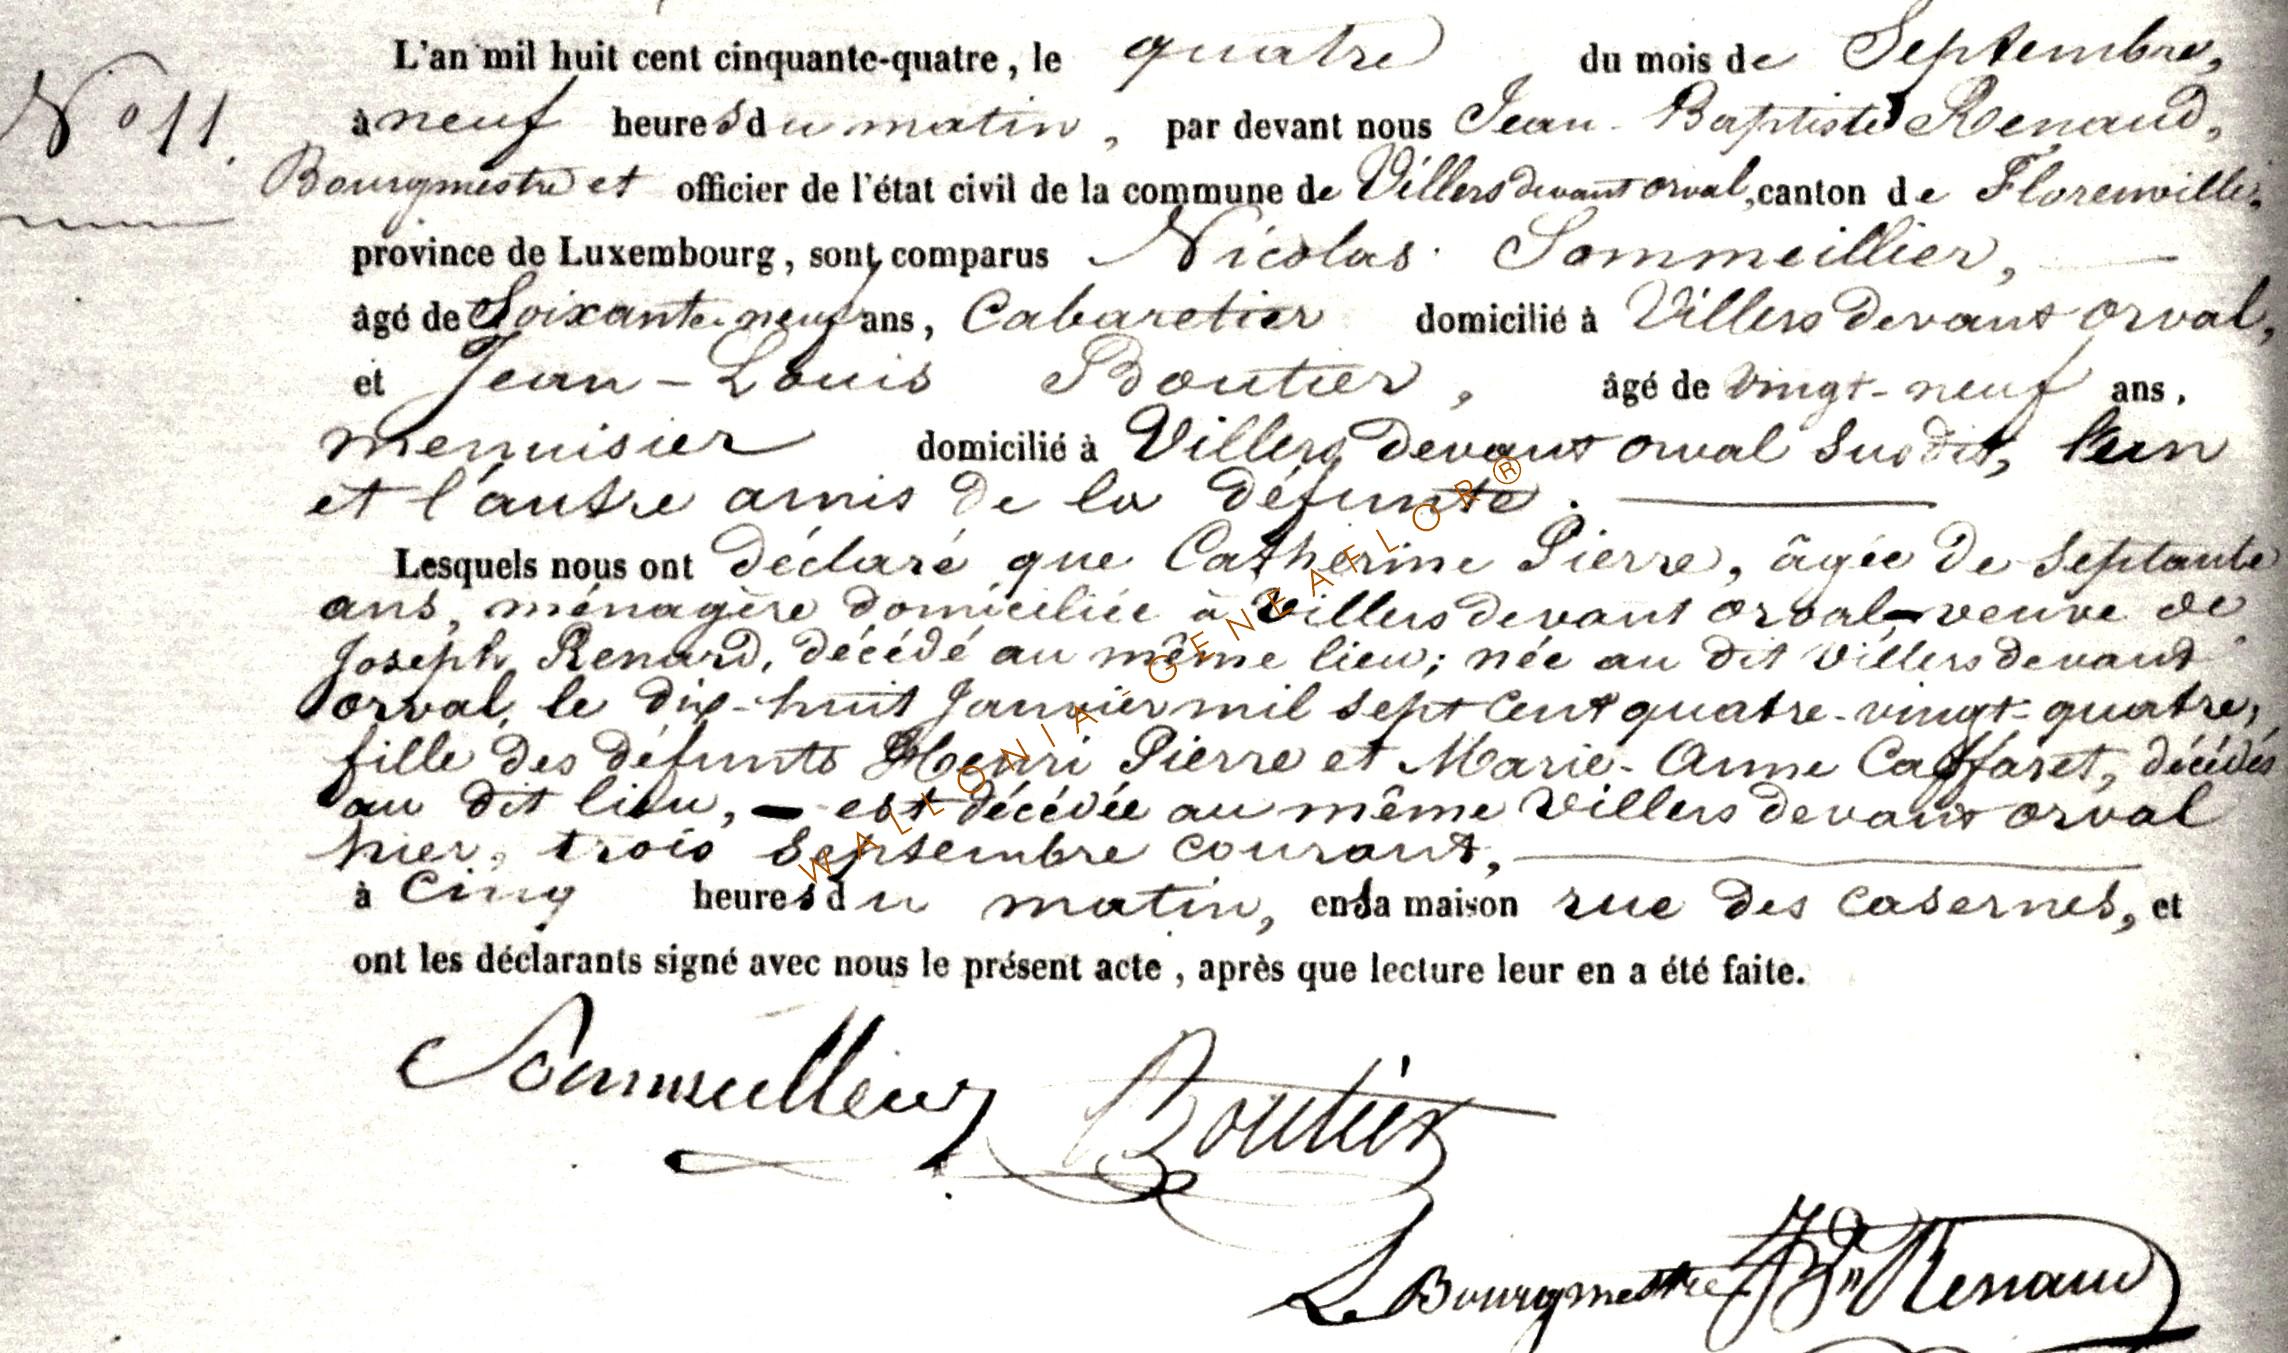 L'an mil huit cent cinquante-quatre, le quatre du mois de Septembre,
N° 11. à neuf heures du matin, par devant nous Jean-Baptiste Renaud,
Bourgmestre et officier de l'état civil de la commune de Villers devant orval, canton de Florenville,
province de Luxembourg, sont comparus Nicolas Sommeillier,
âgé de Soixante-neuf ans, Cabaretier domicilié à Villers devant orval,
et Jean-Louis Boutier, âgé de vingt-neuf ans,
menuisier domicilié à Villers devant orval susdit, l'un
et l'autre amis de la défunte.
Lesquels nous ont déclaré que Catherine Pierre, âgée de septante
ans, ménagère domiciliée à Villers devant orval, veuve de
Joseph Renard, décédé au même lieu; née au dit villers devant
orval, le dix-huit Janvier mil sept cent quatre-vingt-quatre,
fille des défunts Henri Pierre et Marie-Anne Caffaret, décédés
au dit lieu, - est décédée au même villers devant orval
hier, trois septembre courant,
à cinq heures du matin, en sa maison rue des casernes, et
ont les déclarants signé avec nous le présent acte, après que lecture leur en a été faite.
Sommeillier Boutier
Le Bourgmestre JBte Renaud
WALLONIA-GENEAFLOR®